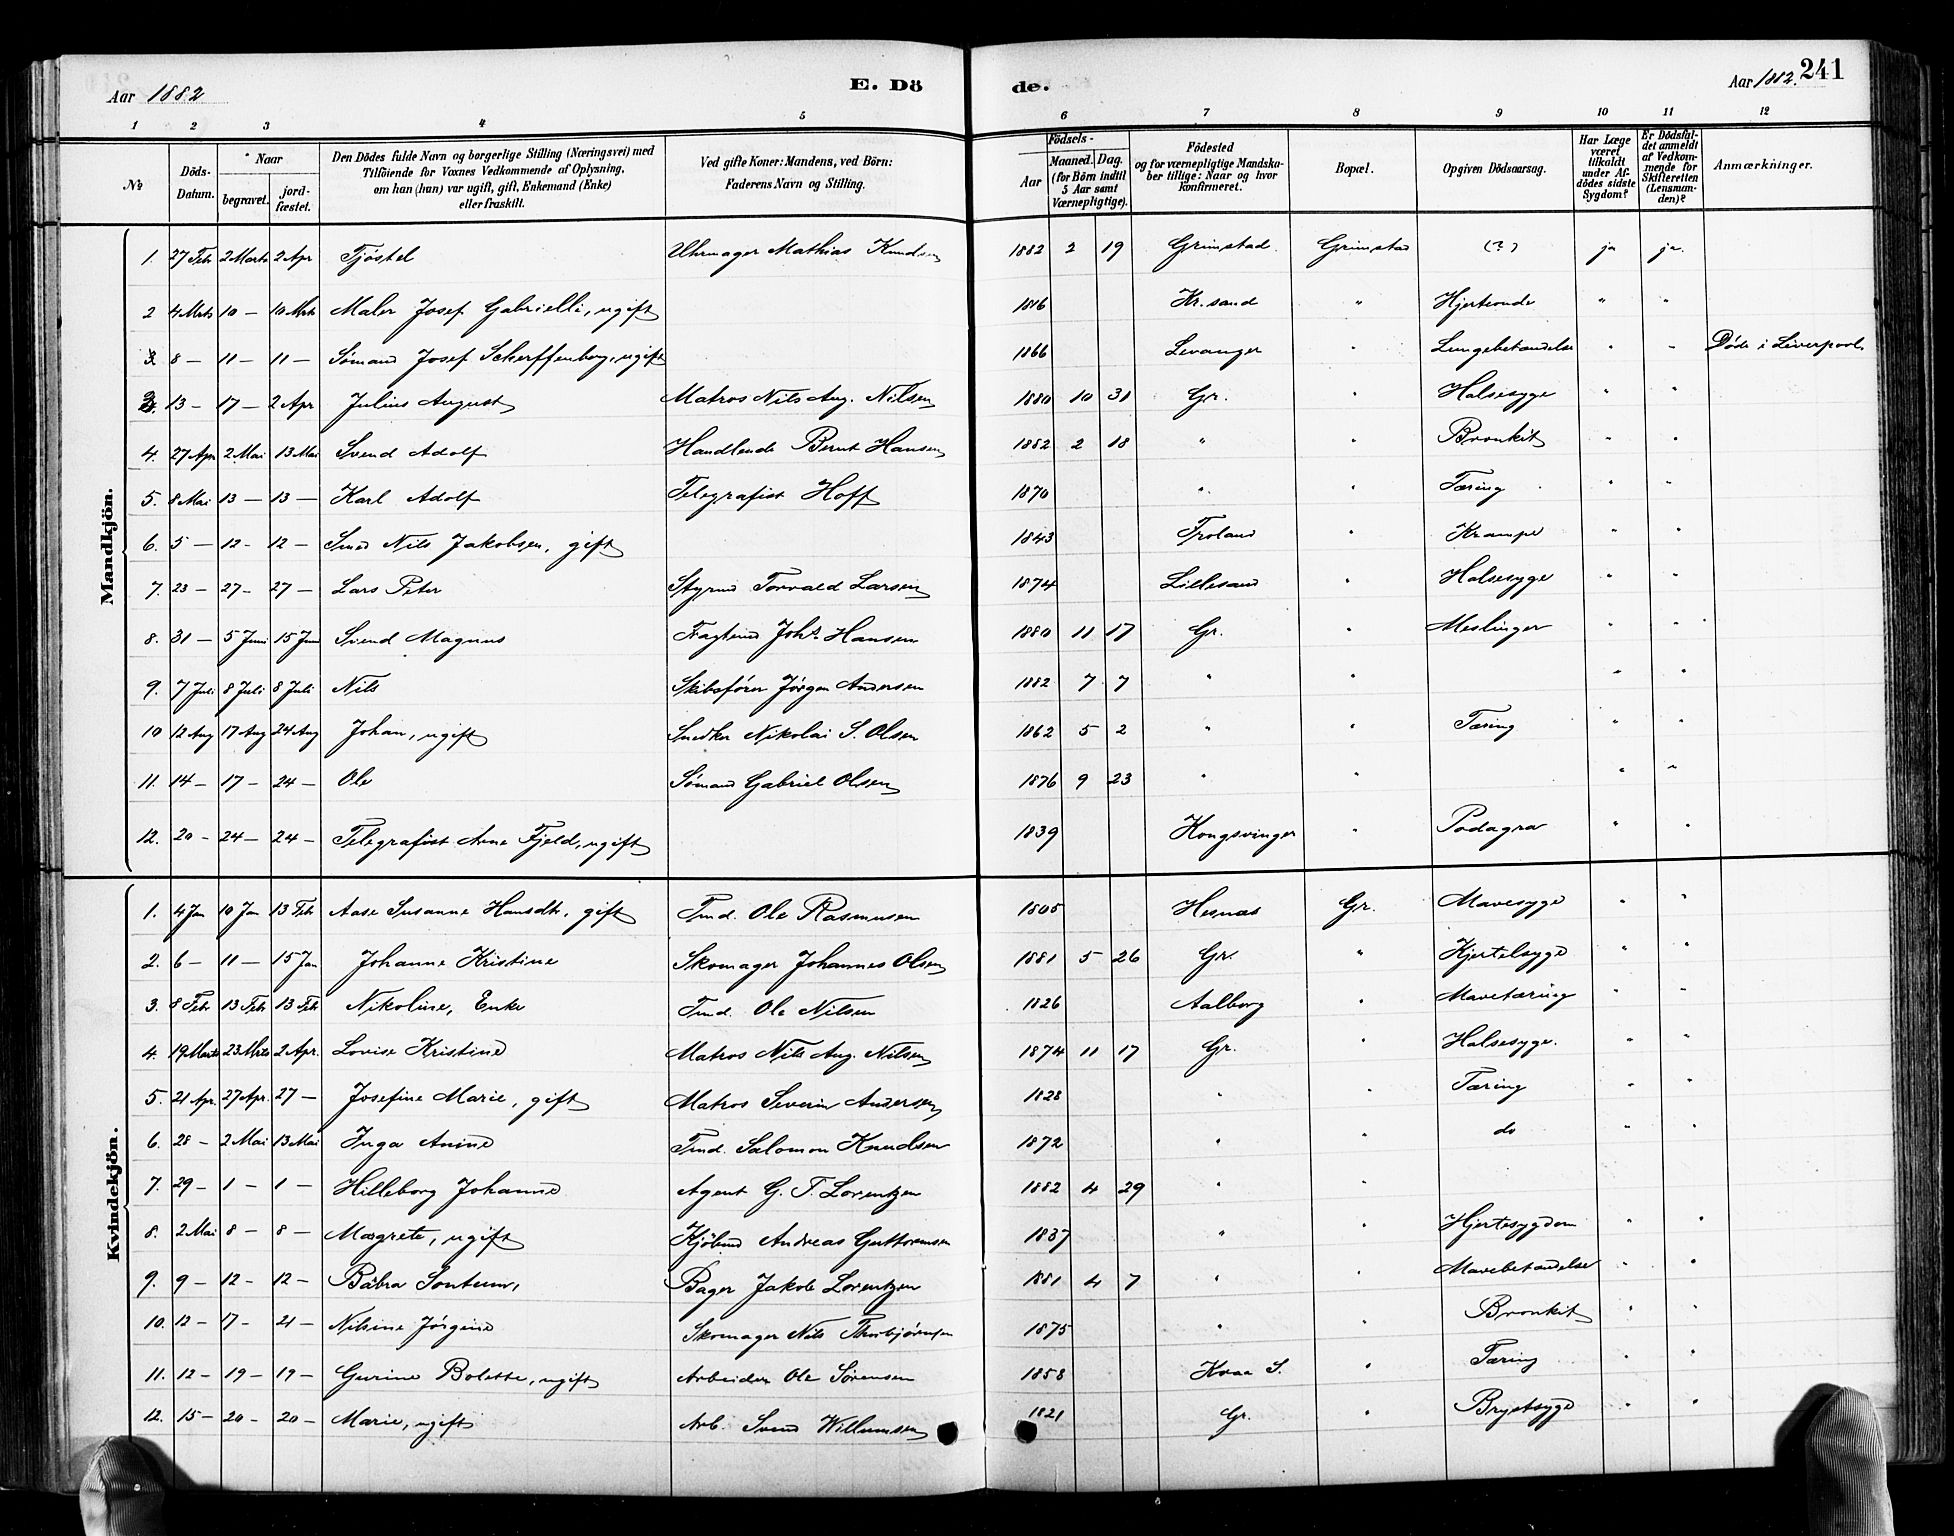 Aar 1882
E. Dö
de.
Aar 1882. 241
1 2 3 4 5 6 7 8 9 10 11 12
№
Döds-Datum.
Naar
begravet.
jordfæstet.
Den Dödes fulde Navn og borgerlige Stilling (Næringsvei) med
Tilföiende for Voxnes Vedkommende af Oplysning,
om han (hun) var ugift, gift, Enkemand (Enke)
eller fraskilt.
Ved gifte Koner: Mandens, ved Börn:
Faderens Navn og Stilling.
Födsels-
Aar
Maaned. Dag.
(for Börn indtil
5 Aar samt
Værnepligtige).
Födested
og for værnepligtige Mandskaber tillige: Naar og hvor
konfirmeret.
Bopæl.
Opgiven Dödsaarsag.
Har Læge været tilkaldt under Afdödes sidste Sygdom?
Er Dödsfaldet anmeldt af Vedkommende for Skifteretten (Lensmanden)?
Anmærkninger.
Mandkjön.
1. 27 Febr 2 Marts 2 Apr Tjöstel Uhrmager Mathias Knudsen 1882 2 19 Grimstad Grimstad (?) ja ja.
2 4 Mrts 10 — 10 Mrts Maler Josef Gabrielli, ugift 1816 Kr.sand " Hjerteonde " "
3. 8 — 11 — 11 — Sømand Josef Scherffenberg, ugift 1866 Levanger " Lungebetændelse " " Døde i Liverpool.
3. 13 — 17 — 2 Apr Julius August Matros Nils Aug. Nilsen 1880 10 31 Gr. " Halsesyge " "
4. 27 Apr 2 Mai 13 Mai Svend Adolf Handlende Bernt Hansen 1882 2 18 " " Bronkit " "
5. 8 Mai 13 — 13 — Karl Adolf Telegrafist Hoff 1870 " " Tæring " "
6. 5 — 12 - 12 — Smed Nils Jakobsen, gift 1843 Froland " Krampe " "
7. 23 — 27 - 27 — Lars Peter Styrmd Torvald Larsen 1874 Lillesand " Halsesyge " "
8. 31 — 5 Juni 15 Jun Svend Magnus Fragtemd Johs. Hansen 1880 11 17 Gr. " Meslinger " "
9. 7 Juli 8 Juli 8 Juli Nils Skibsfører Jørgen Andersen 1882 7 7 " " " "
10 12 Aug 17 Aug 24 Aug Johan, ugift Snedker Nikolai S. Olsen 1862 5 2 " " Tæring " "
11. 14 — 17 — 24 — Ole Sømand Gabriel Olsen 1876 9 23 " " " "
12. 20 — 24 — 24 — Telegrafist Arne Fjeld, ugift 1839 Kongsvinger " Podagra " "
Kvindekjön.
1. 4 Jan 10 Jan 13 Febr Aase Susanne Hansdtr, gift Tmd. Ole Rasmusen 1805 Hesnæs Gr. Mavesyge " "
2. 6 — 11 — 15 Jan Johanne Kristine Skomager Johannes Olsen 1881 5 26 Gr. " Kjertelsyge " "
3. 8 Febr 13 Febr 13 Febr Nikoline, Enke Tmd. Ole Nilsen 1826 Aalborg " Mavetæring " "
4. 19 Marts 23 Mrts 2 Apr. Lovise Kristine Matros Nils Aug. Nilsen 1874 11 17 Gr. " Halsesyge. " "
5. 21 Apr. 27 Apr. 27 — Josefine Marie, gift Matros Severin Andersen 1828 " " Tæring " "
6. 28 — 2 Mai 13 Mai Inga Anine Tmd. Salomon Knudsen 1872 " " do " "
7. 29 — 1 — 1 — Hilleborg Johanne Agent G. T. Lorentzen 1882 4 29 " "
8. 2 Mai 8 — 8 — Margrete, ugift Kjöbmd Andreas Guttormsen 1837 " " Hjertesygdom " "
9. 9 — 12 — 12 — Bäbra Sontum, Bager Jakob Lorentzen 1881 4 7 " " Mavebetændelse " "
10. 12 — 17 — 21 — Nilsine Jørgine Skomager Nils Thorbjørnsen 1875 " " Bronkit " "
11. 12 — 19 — 19 — Gurine Bolette, ugift Arbeider Ole Sørensen 1858 Kraa S. " Tæring " "
12. 15 — 20 — 20 — Marie, ugift Arb. Svend Willumsen 1821 Gr. " Brystsyge " "